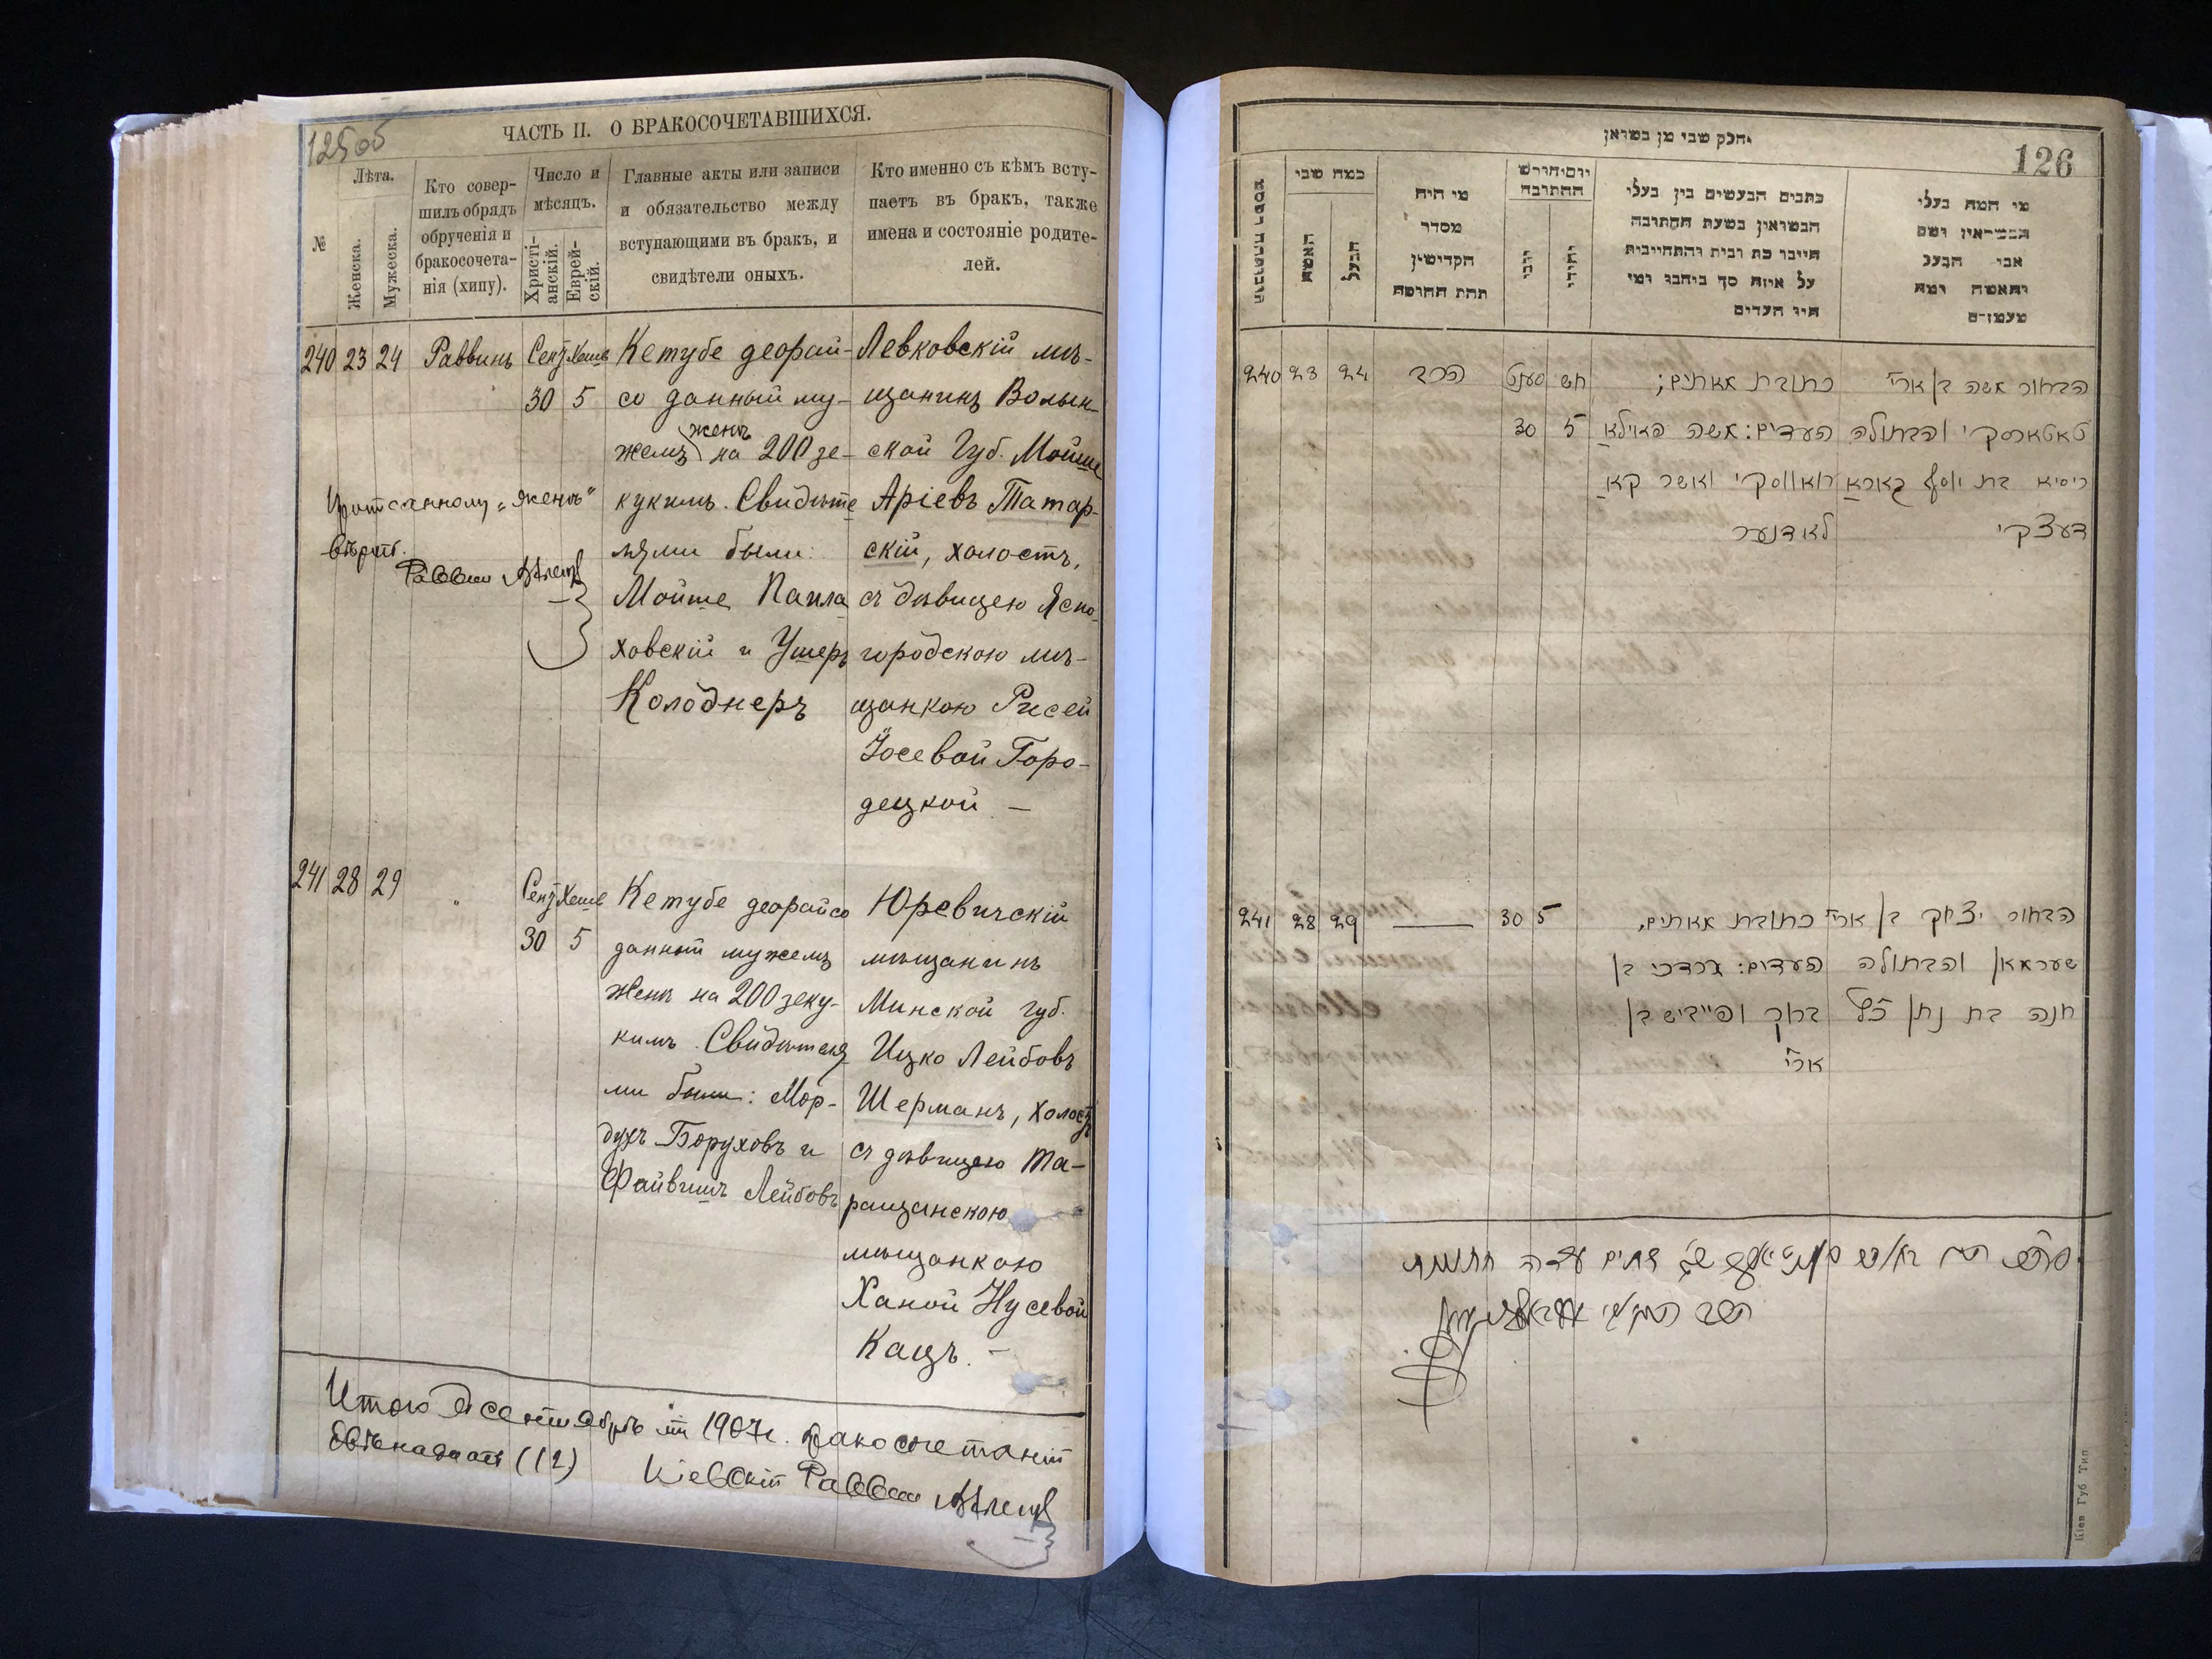 125об
ЧАСТЬ II. О БРАКОСОЧЕТАВШИХСЯ.
№
Лѣта.
Женска.
Мужеска.
Кто совер-
шилъ обрядъ
обрученія и
бракосочета-
нія (хипу).
Число и
мѣсяцъ.
Христі-
анскій.
Еврей-
скій.
Главные акты или записи
и обязательство между
вступающими въ бракъ, и
свидѣтели оныхъ.
Кто именно съ кѣмъ всту-
паетъ въ бракъ, также
имена и состояніе родите-
лей.
240 23 24 Раввинъ
Сент Хешв
30 5
Кетубе деорай-
со данный му-
жемъ женѣ на 200 зе-
кукимъ. Свидѣте
лями были:
Мойше Папла
ховскій и Ушеръ
Колоднеръ
Левковскій мѣ-
щанинъ Волын-
ской Губ. Мойше
Аріевъ Татар-
скій, холостъ,
съ дѣвицею Ясно-
городскою мѣ-
щанкою Рисей
Йосевой Горо-
децкой —
"женѣ"
вѣрить.
Раввин
241 28 29 "
Сент Хешв
30 5
Кетубе деорайсо
данный мужемъ
женѣ на 200 зеку-
кимъ. Свидѣтеля
ми были: Мор-
духъ Боруховъ и
Файвишъ Лейбовъ
Юревичскій
мѣщанинъ
Минской губ.
Ицко Лейбовъ
Шерманъ, холостъ
съ дѣвицею Та-
ращанскою
мѣщанкою
Ханой Нусевой
Кацъ. —
Итого въ сентябрѣ 1907г. бракосочетаній
двѣнадцать (12) Кіевскій Раввин
126
חלק שני מן נשואין
האשה
הבעל
כמה שני
מי היה
מסדר
הקדושין
תחת החופה
יום וחודש
החתונה
נוצרי
יהודי
כתבים הנעשים בין בעלי
הנשואין בשעת החתונה
חייבו כת ובית והתחייבות
על איזה סך ביחבו ומי
היו העדים
מי המה בעלי
הנשואין ושם
אבי הבעל
והאשה ומה
מעמדם
240 23 24 הרב
סענט חש
30 5
כתובת מאתים;
העדים: משה פאפילא
חאווסקי ואשר קא
לאדנער
הבחור משה בן ארי'
טאטארסקי והבתולה
ריסיא בת יוסף גארא
דעצקי
241 28 29 — 30 5
כתובת מאתים,
העדים: מרדכי בן
ברוך ופייביש בן
ארי'
הבחור יצחק בן ארי'
שערמאן והבתולה
חנה בת נתן כץ
Кіев Губ Тип